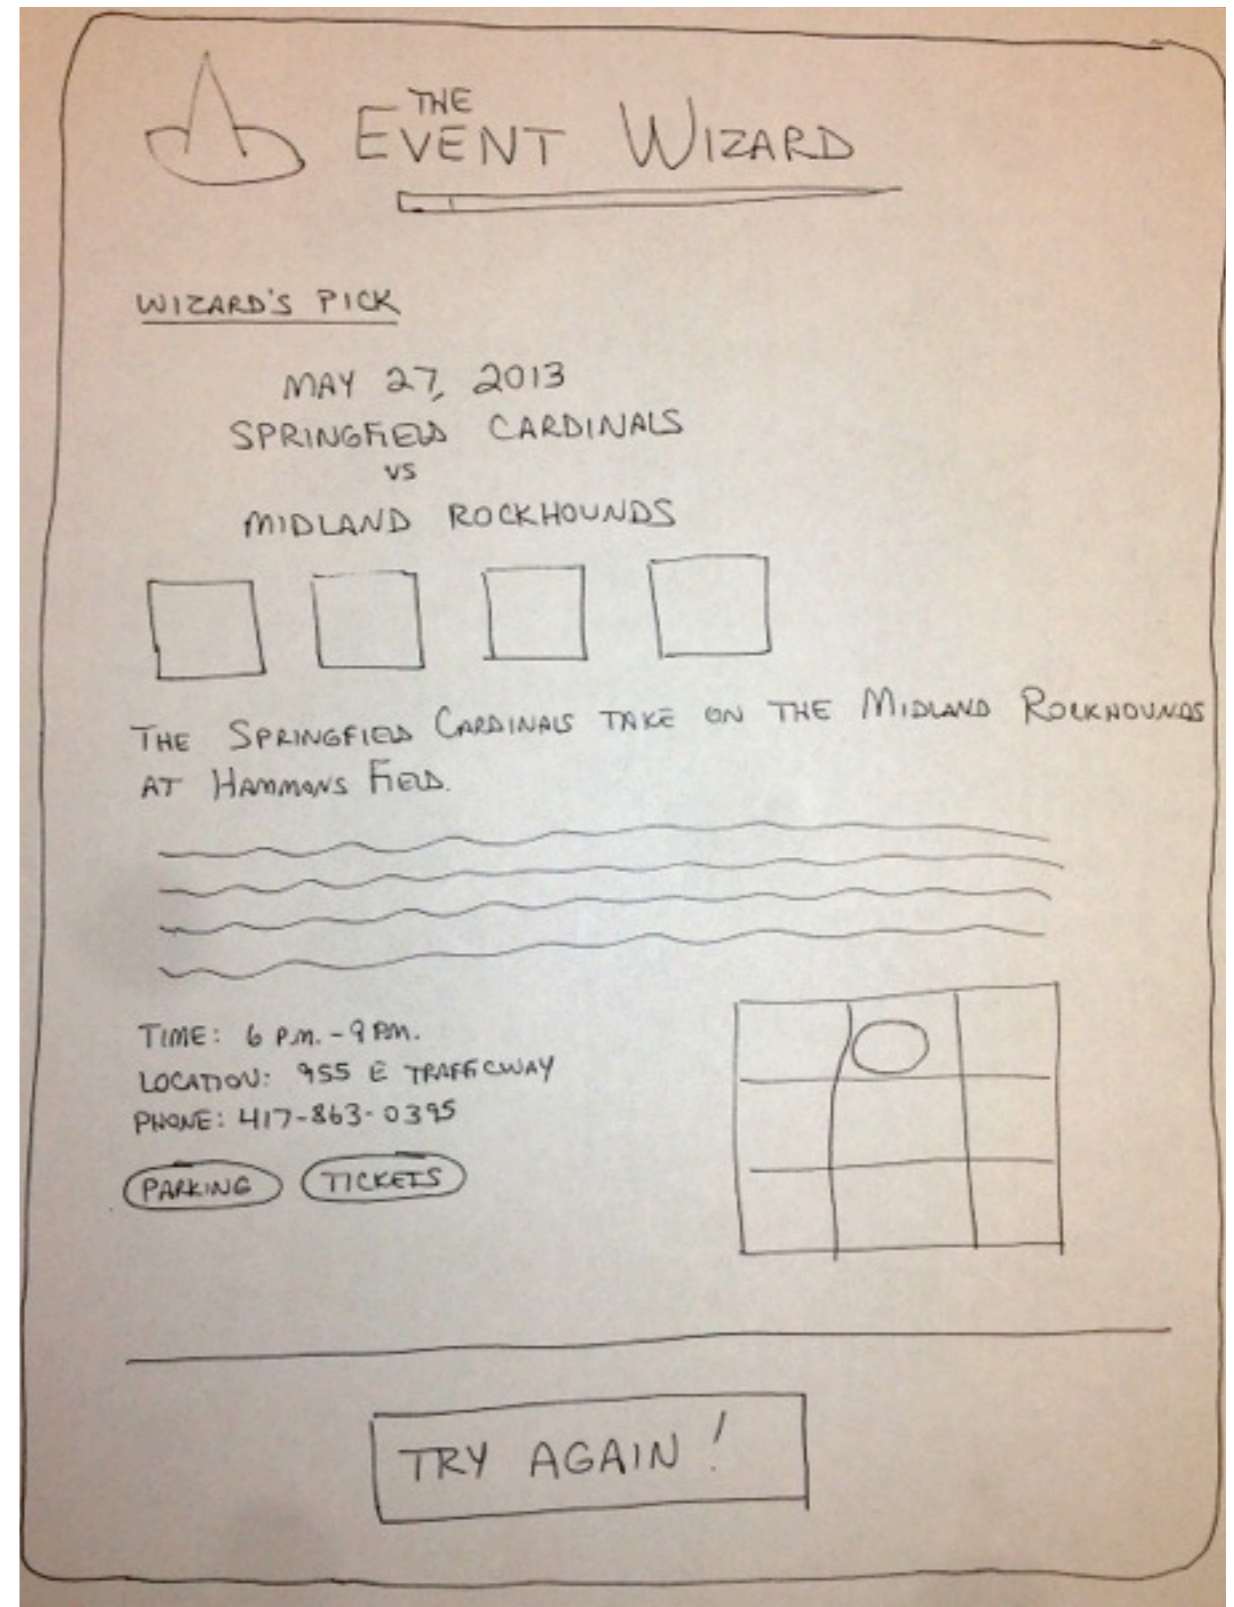 THE
EVENT WIZARD
WIZARD'S PICK
MAY 27, 2013
SPRINGFIELD CARDINALS
VS
MIDLAND ROCKHOUNDS
THE SPRINGFIELD CARDINALS TAKE ON THE MIDLAND ROCKHOUNDS
AT HAMMONS FIELD.
TIME: 6 P.M. - 9 P.M.
LOCATION: 955 E TRAFFICWAY
PHONE: 417-863-0395
PARKING TICKETS
TRY AGAIN!